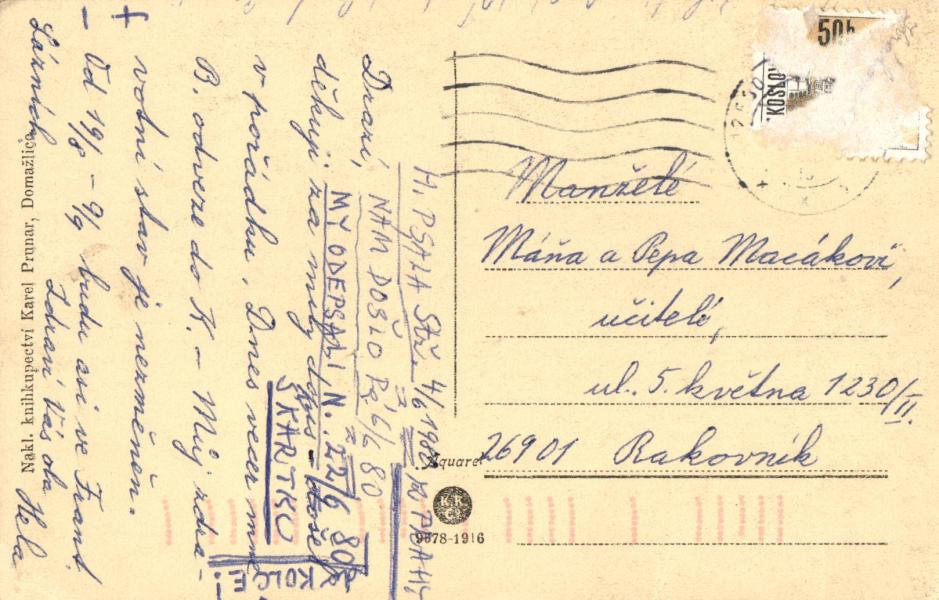 Drazí,
děkuji za milý dopis došel
v pořádku. Dnes večer mne
B. odveze do K. – Můj zdra-
votní stav je nezměněn.
– Od 19/8 – 9/9 budu asi ve Frant.
Lázních. Zdraví Vás oba Hela
+
H. PSALA STŘ. 4/6 1980 Z K. PRAHY
NÁM DOŠLO PÁ 6/6 80
MY ODEPSALI N. 22/6 80
S KARTKU
KOLCE!
Nakl. knihkupectví Karel Prunar, Domažlice
50h
Manželé
Máňa a Pepa Macákovi,
učitelé,
ul. 5. května 1230/II.
26901 Rakovník
Aquarel
9878-1916